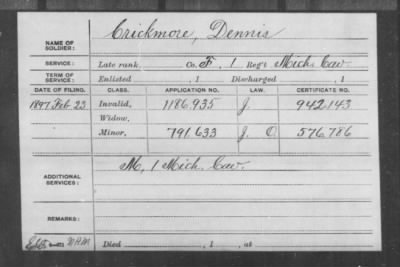 NAME OF SOLDIER: Crickmore, Dennis
SERVICE: Late rank Co. F, 1 Reg't Mich. Cav.
TERM OF SERVICE: Enlisted , 1 Discharged , 1
DATE OF FILING. CLASS. APPLICATION NO. LAW. CERTIFICATE NO.
1897 Feb. 23 Invalid, 1186.935 J. 942.143
Widow,
Minor, 791.633 J. O 576.786
ADDITIONAL SERVICES: M, 1 Mich. Cav.
REMARKS:
Died , 1 , at